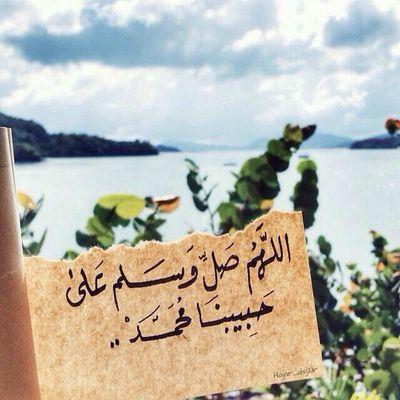 اللَّهُمَّ صَلِّ وَسَلم عَلىٰ
حَبِيبنَا مُحَمَّدْ ..